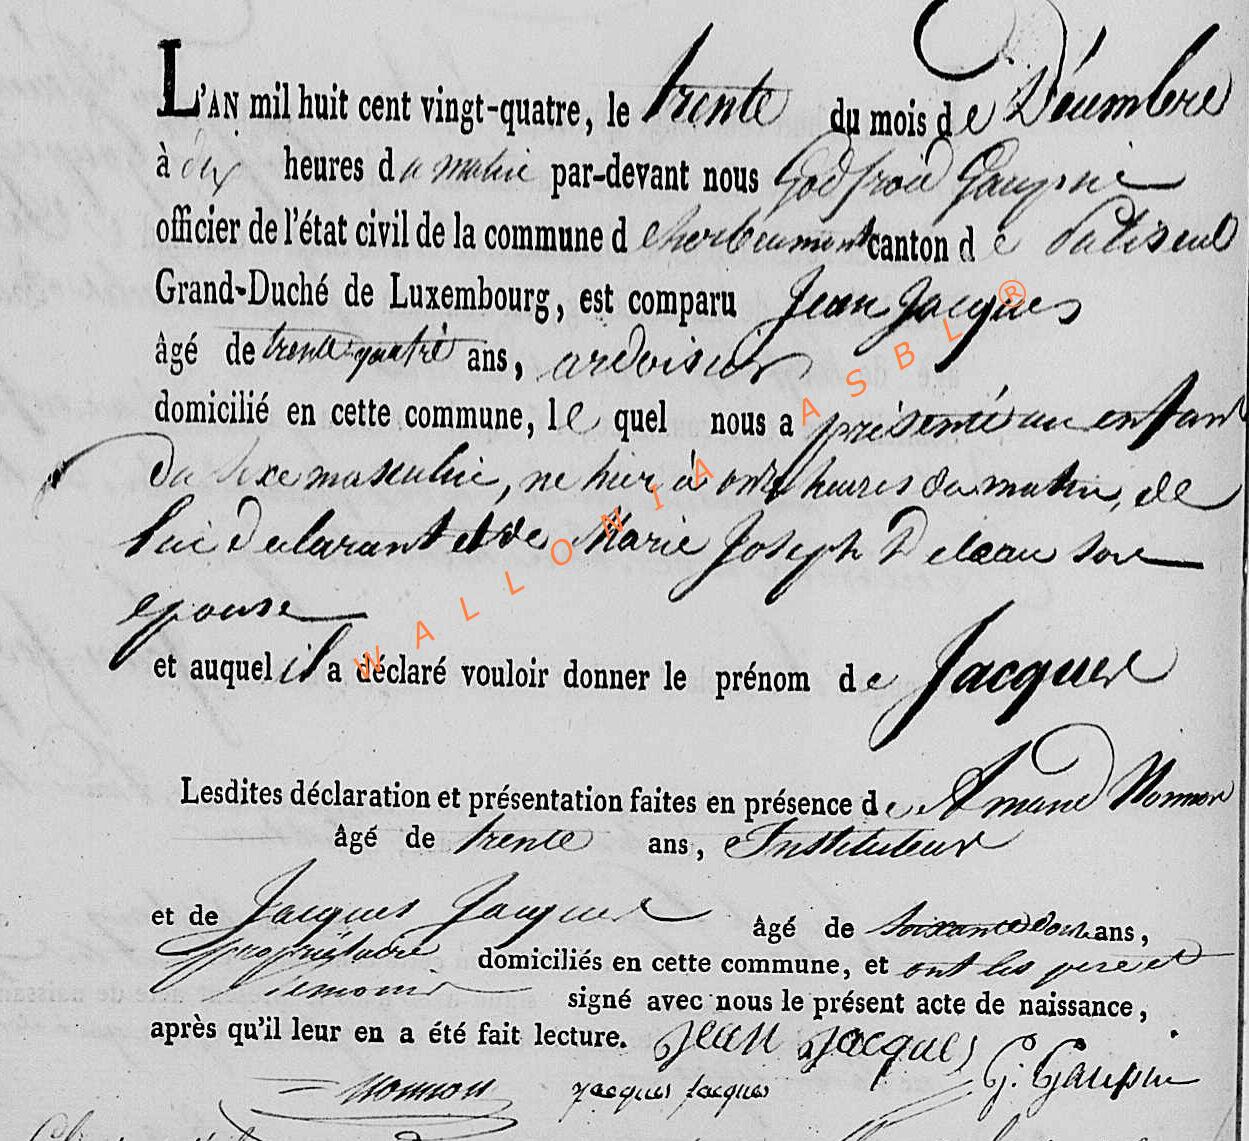 L'AN mil huit cent vingt-quatre, le trente du mois de Décembre
à dix heures du matin par-devant nous Godfroid Gaupin
officier de l'état civil de la commune d'herbeumont canton de Paliseul
Grand-Duché de Luxembourg, est comparu Jean Jacques
âgé de trente quatre ans, ardoisier
domicilié en cette commune, lequel nous a présenté un enfant
du sexe masculin, né hier à onze heures du matin, de
lui déclarant et de Marie Joseph son
epouse
et auquel il a déclaré vouloir donner le prénom de Jacques
Lesdites déclaration et présentation faites en présence de Amand Nonnon
âgé de trente ans, Instituteur
et de Jacques Jacques âgé de soixante douze ans,
propriétaire domiciliés en cette commune, et ont les père et
témoins signé avec nous le présent acte de naissance,
après qu'il leur en a été fait lecture. Jean Jacques
Nonnon Jacques Jacques G. Gaupin
WALLONIA ASBL ®